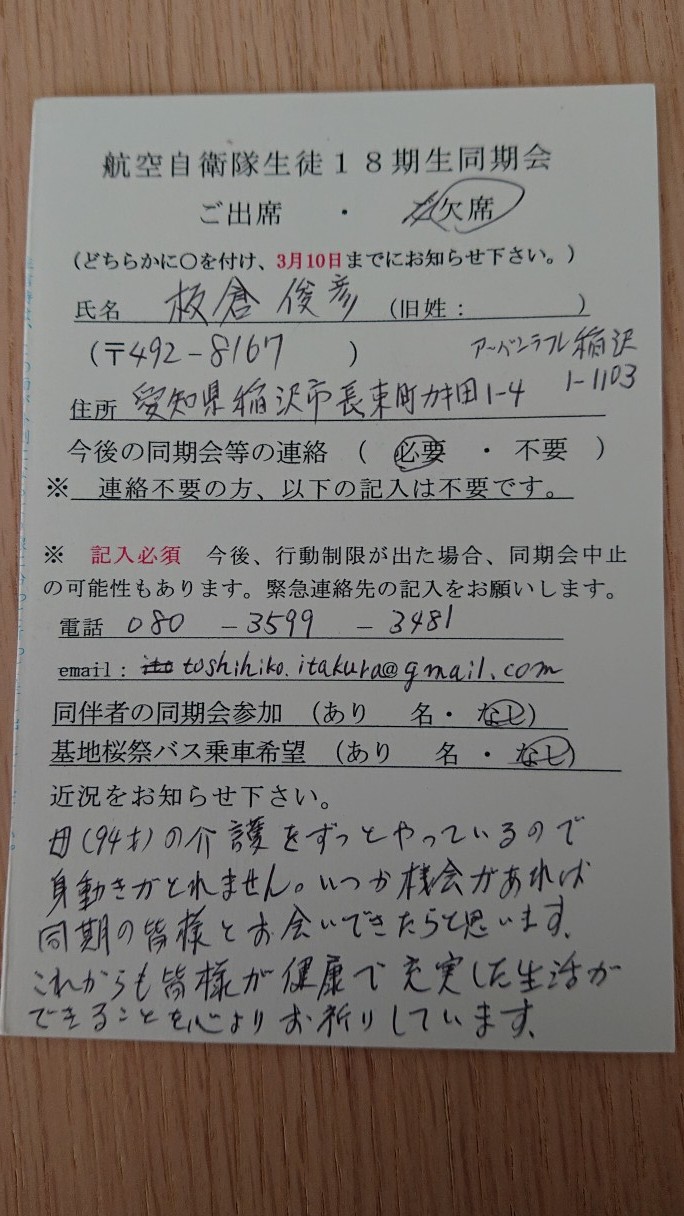 航空自衛隊生徒18期生同期会
ご出席 ・ ご欠席
(どちらかに〇を付け、3月10日までにお知らせ下さい。)
氏名 板倉 俊彦 (旧姓: )
(〒492-8167 )
アーバンラフレ稲沢
1-1103
住所 愛知県稲沢市長束町カキ田1-4
今後の同期会等の連絡 ( 必要 ・ 不要 )
※ 連絡不要の方、以下の記入は不要です。
※ 記入必須 今後、行動制限が出た場合、同期会中止
の可能性もあります。緊急連絡先の記入をお願いします。
電話 080 -3599 -3481
email: toshihiko.itakura@gmail.com
同伴者の同期会参加 (あり 名・ なし)
基地桜祭バス乗車希望 (あり 名 ・ なし)
近況をお知らせ下さい。
母(94才)の介護をずっとやっているので
身動きがとれません。いつか機会があれば
同期の皆様とお会いできたらと思います。
これからも皆様が健康で充実した生活が
できることを心よりお祈りしています。